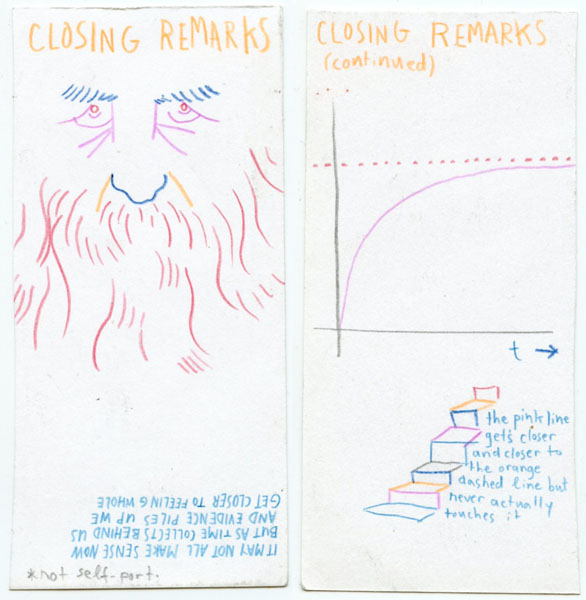 CLOSING REMARKS
IT MAY NOT ALL MAKE SENSE NOW
BUT AS TIME COLLECTS BEHIND US
AND EVIDENCE PILES UP WE
GET CLOSER TO FEELING WHOLE
*not self-port.
CLOSING REMARKS
(continued)
t →
the pink line
gets closer
and closer to
the orange
dashed line but
never actually
touches it